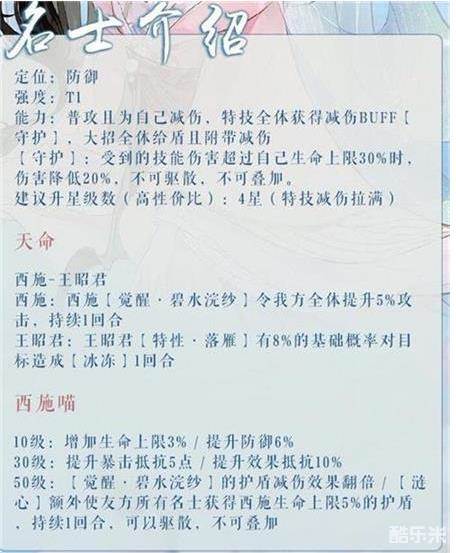 名士介绍
定位：防御
强度：T1
能力：普攻且为自己减伤，特技全体获得减伤BUFF【
守护】，大招全体给盾且附带减伤
【守护】：受到的技能伤害超过自己生命上限30%时，
伤害降低20%，不可驱散，不可叠加。
建议升星级数（高性价比）：4星（特技减伤拉满）
天命
西施-王昭君
西施：西施【觉醒·碧水浣纱】令我方全体提升5%攻
击，持续1回合
王昭君：王昭君【特性·落雁】有8%的基础概率对目
标造成【冰冻】1回合
西施喵
10级：增加生命上限3% / 提升防御6%
30级：提升暴击抵抗5点 / 提升效果抵抗10%
50级：【觉醒·碧水浣纱】的护盾减伤效果翻倍 /【涟
心】额外使友方所有名士获得西施生命上限5%的护盾
，持续1回合，可以驱散，不可叠加
酷乐米